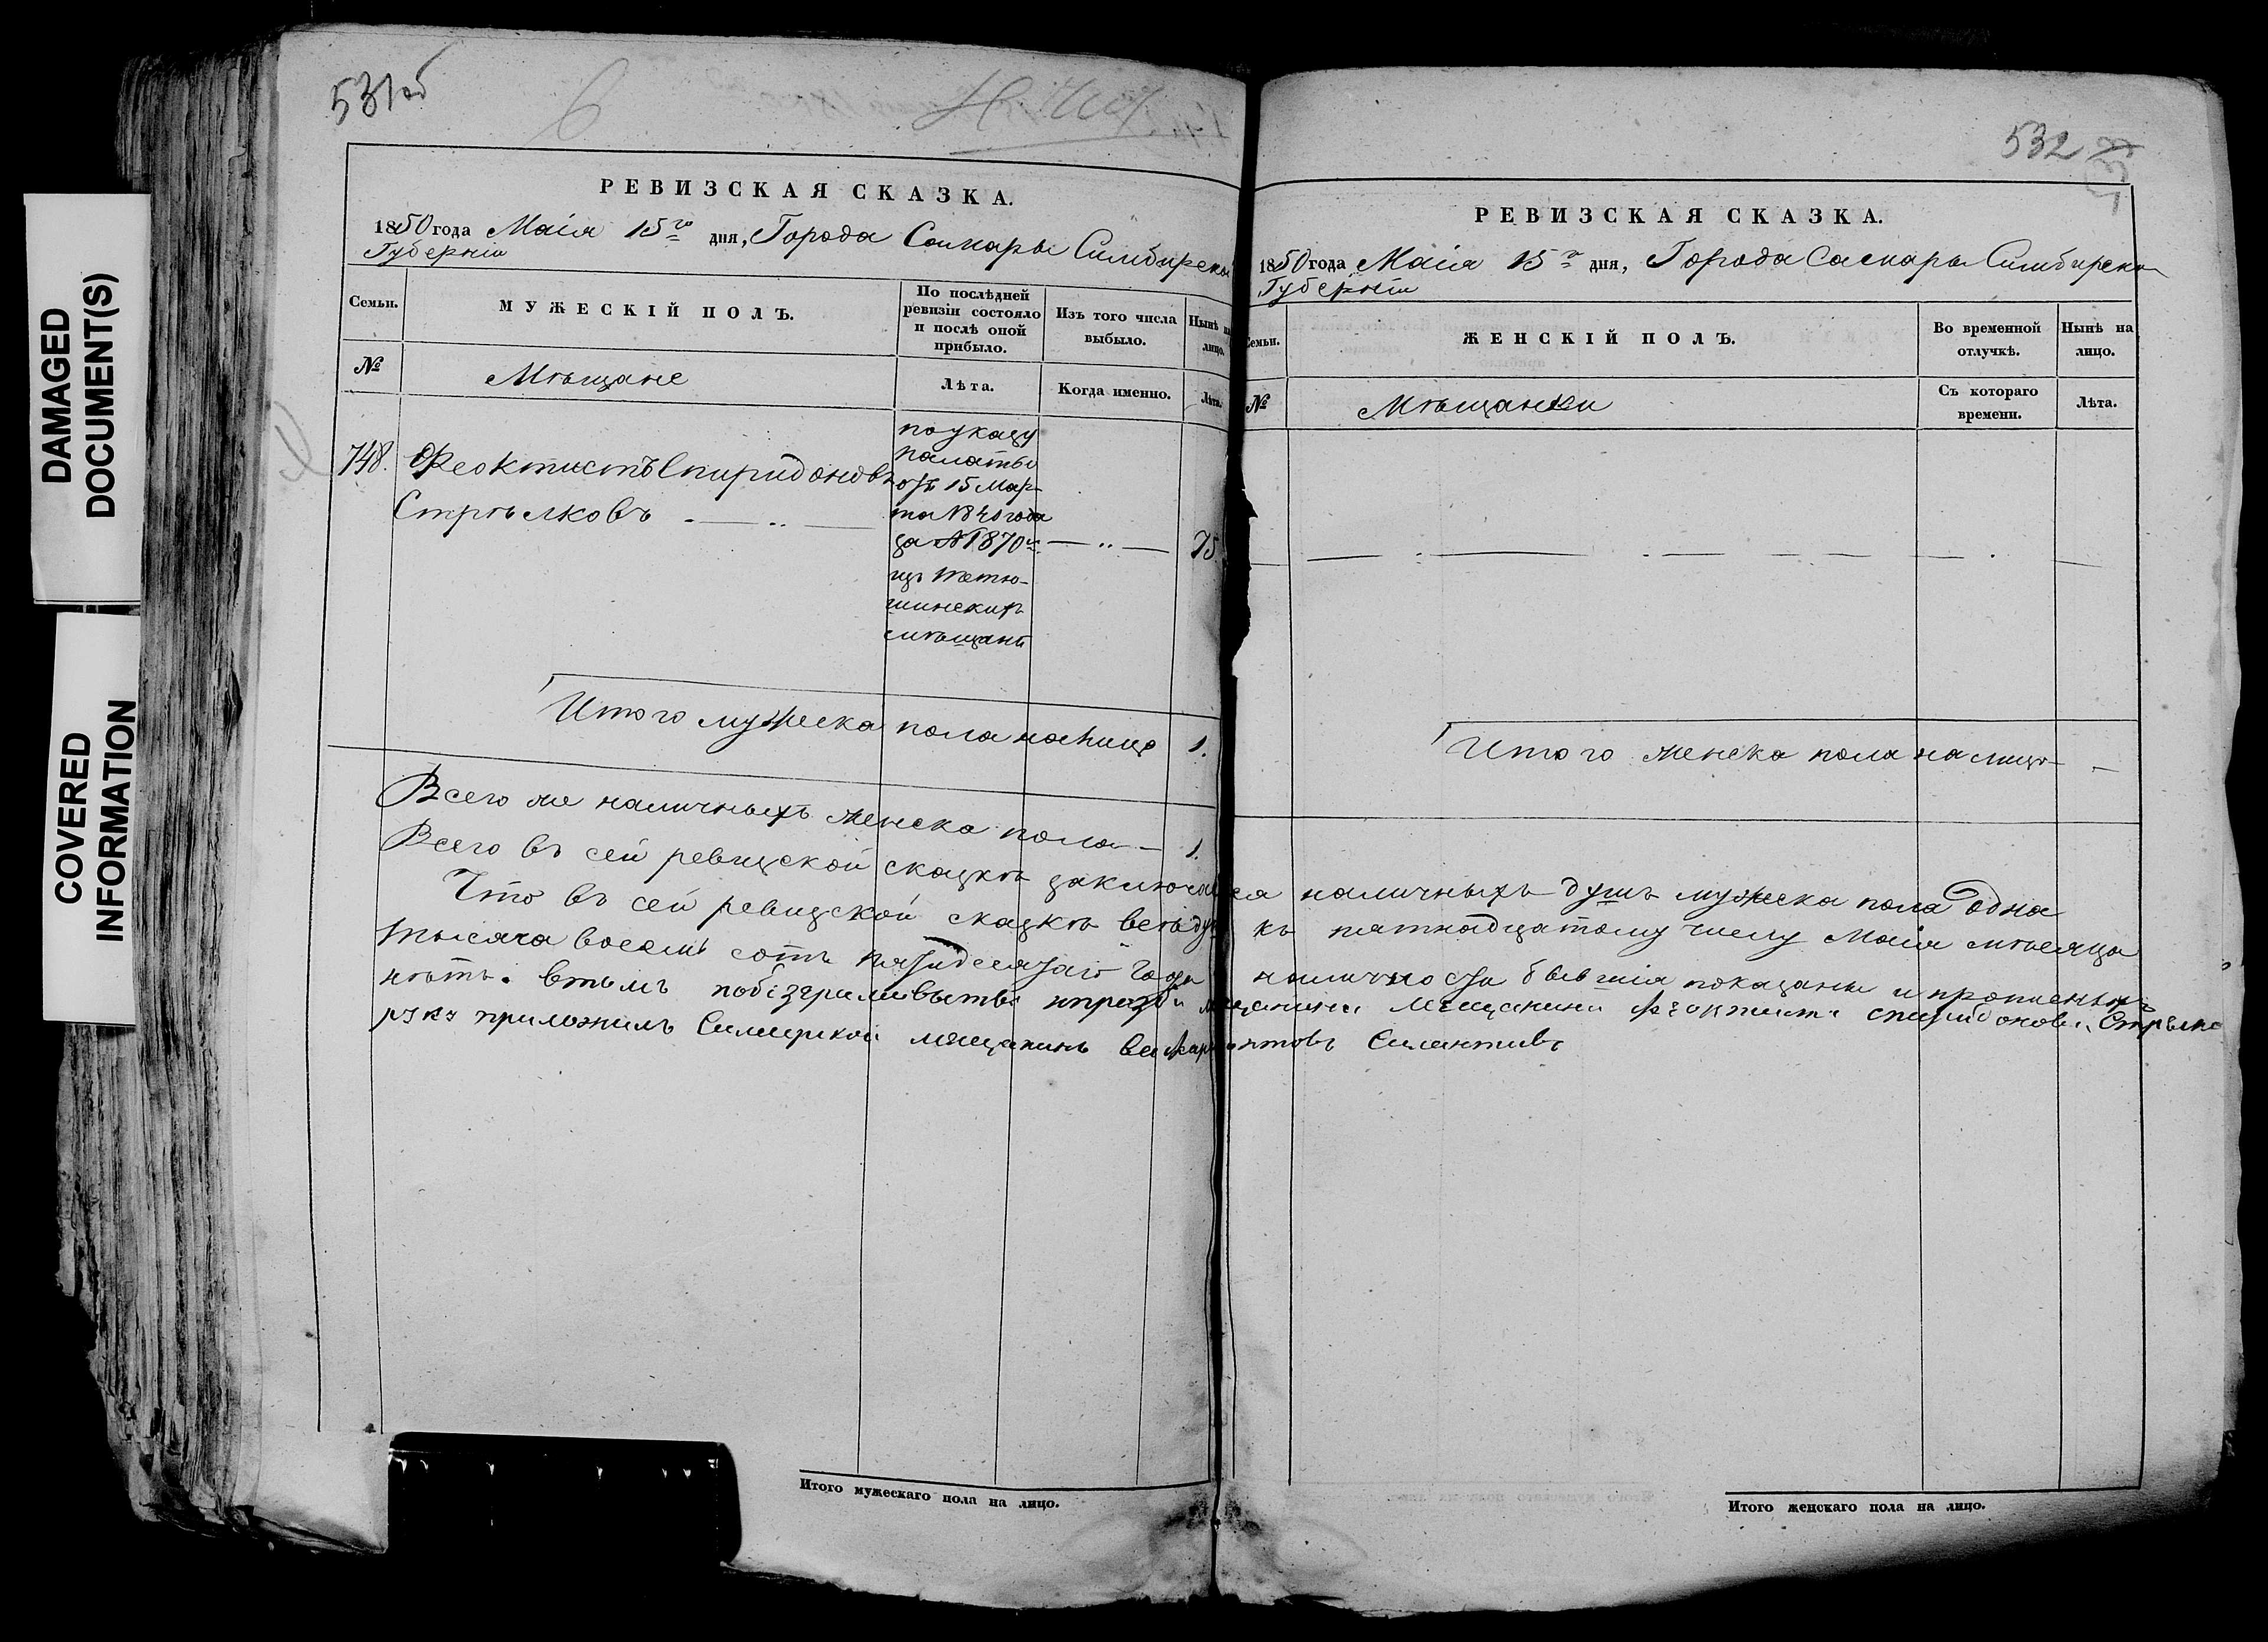 DAMAGED
DOCUMENT(S)
COVERED
INFORMATION
531об
6
РЕВИЗСКАЯ СКАЗКА.
1850 года Маія 15го дня, Города Самары Симбирской
Губерніи
Семьи.
МУЖЕСКІЙ ПОЛЪ.
По послѣдней
ревизіи состояло
и послѣ оной
прибыло.
Изъ того числа
выбыло.
Нынѣ на
лицо.
№
Мѣщане
Лѣта.
Когда именно.
Лѣта.
748.
Феоктистъ Спиридоновъ
Стрѣлковъ
по указу
палаты
отъ 15 Мар-
та 1840 года
за № 1870м
изъ тетю-
шинскихъ
мѣщанъ
75
Итого мужеска пола налицо 1.
532
РЕВИЗСКАЯ СКАЗКА.
1850 года Маія 15го дня, Города Самары Симбирской
Губерніи
Семьи.
ЖЕНСКІЙ ПОЛЪ.
Во временной
отлучкѣ.
Нынѣ на
лицо.
№
Мѣщанки
Съ котораго
времени.
Лѣта.
Итого женска пола налицо —
Всего же наличныхъ женска пола — 1.
Всего въ сей ревизской сказкѣ заключается наличныхъ душъ мужеска пола одна
Что въ сей ревизской сказкѣ всѣ душ къ пятнадцатому числу Маія мѣсяца
тысяча восемь сотъ пятидесятаго года наличности бывшія показаны и прописныхъ
нѣтъ. втомъ мещанина Феоктиста спиридонова Стрелко
руку приложилъ мещанинъ
Итого мужескаго пола на лицо.
Итого женскаго пола на лицо.